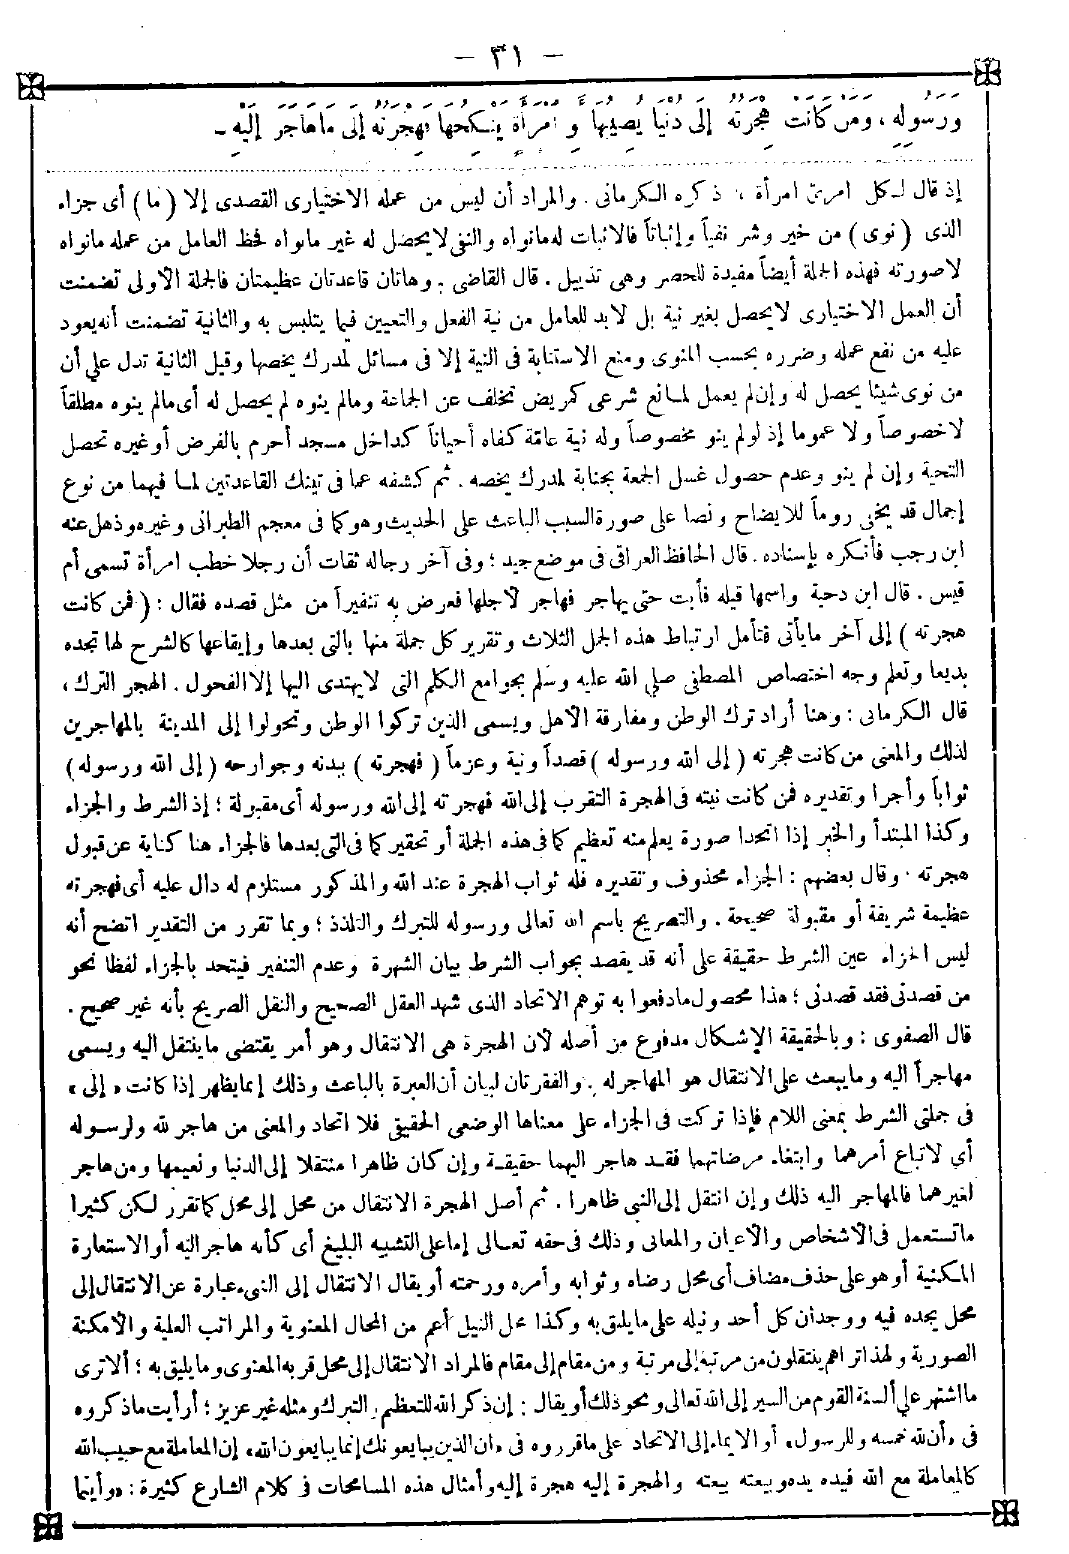 — ٣١ —
وَرَسُولِهِ، وَمَنْ كَانَتْ هِجْرَتُهُ إِلَى دُنْيَا يُصِيبُهَا أَوِ امْرَأَةٍ يَنْكِحُهَا فَهِجْرَتُهُ إِلَى مَا هَاجَرَ إِلَيْهِ -
إذ قال لكل امرئ امرأة، ذكره الكرمانى. والمراد أن ليس من عمله الاختيارى القصدى إلا (ما) أى جزاء
الذى (نوى) من خير وشر نفياً وإثباتاً فالاثبات له مانواه والنفى لايحصل له غير مانواه فحظ العامل من عمله مانواه
لاصورته فهذه الجملة أيضاً مفيدة للحصر وهى تذييل. قال القاضى: وهاتان قاعدتان عظيمتان فالجملة الأولى تضمنت
أن العمل الاختيارى لايحصل بغير نية بل لابد للعامل من نية الفعل والتعيين فيما يتلبس به والثانية تضمنت أنه يعود
عليه من نفع عمله وضرره بحسب المنوى ومنع الاستنابة فى النية إلا فى مسائل لمدرك يخصها وقيل الثانية تدل على أن
من نوى شيئا يحصل له وإن لم يعمل لمانع شرعى كمريض تخلف عن الجماعة ومالم ينوه لم يحصل له أى مالم ينوه مطلقاً
لاخصوصاً ولا عموما إذ لو لم ينو مخصوصاً وله نية عامة كفاه أحياناً كداخل مسجد أحرم بالفرض أو غيره تحصل
التحية وإن لم ينو وعدم حصول غسل الجمعة بجنابة لمدرك يخصه. ثم كشفه عما فى تينك القاعدتين لما فيهما من نوع
إجمال قد يخفى روماً للايضاح ونصا على صورة السبب الباعث على الحديث وهو كما فى معجم الطبرانى وغيره وذهل عنه
ابن رجب فأنكره بإسناده. قال الحافظ العراقى فى موضع جيد؛ وفى آخر رجاله ثقات أن رجلا خطب امرأة تسمى أم
قيس. قال ابن دحية واسمها قيلة فأبت حتى يهاجر فهاجر لأجلها فعرض به تنفيراً من مثل قصده فقال: (فمن كانت
هجرته) إلى آخر ما يأتى فتأمل ارتباط هذه الجمل الثلاث وتقرير كل جملة منها بالتى بعدها وإيقاعها كالشرح لها تجده
بديعا وتعلم وجه اختصاص المصطفى صلى الله عليه وسلم بجوامع الكلم التى لايهتدى اليها إلا الفحول. الهجر الترك،
قال الكرمانى: وهنا أراد ترك الوطن ومفارقة الأهل ويسمى الذين تركوا الوطن وتحولوا إلى المدينة بالمهاجرين
لذلك والمعنى من كانت هجرته (إلى الله ورسوله) قصداً ونية وعزماً (فهجرته) ببدنه وجوارحه (إلى الله ورسوله)
ثواباً وأجرا وتقديره فمن كانت نيته فى الهجرة التقرب إلى الله فهجرته إلى الله ورسوله أى مقبولة؛ إذ الشرط والجزاء
وكذا المبتدأ والخبر إذا اتحدا صورة يعلم منه تعظيم كما فى هذه الجملة أو تحقير كما فى التى بعدها فالجزاء هنا كناية عن قبول
هجرته. وقال بعضهم: الجزاء محذوف وتقديره فله ثواب الهجرة عند الله والمذكور مستلزم له دال عليه أى فهجرته
عظيمة شريفة أو مقبولة صحيحة. والتصريح باسم الله تعالى ورسوله للتبرك والتلذذ؛ وبما تقرر من التقدير اتضح أنه
ليس الجزاء عين الشرط حقيقة على أنه قد يقصد بجواب الشرط بيان الشهرة وعدم التنفير فيتحد بالجزاء لفظا نحو
من قصدنى فقد قصدنى؛ هذا محصول مادفعوا به توهم الاتحاد الذى شهد العقل الصحيح والنقل الصريح بأنه غير صحيح.
قال الصفوى: وبالحقيقة الإشكال مدفوع من أصله لأن الهجرة هى الانتقال وهو أمر يقتضى ماينتقل اليه ويسمى
مهاجراً اليه وما يبعث على الانتقال هو المهاجر له. والفقرتان لبيان أن العبرة بالباعث وذلك إنما يظهر إذا كانت «إلى»
فى جملتى الشرط بمعنى اللام فإذا تركت فى الجزاء على معناها الوضعى الحقيقى فلا اتحاد والمعنى من هاجر لله ولرسوله
أي لاتباع أمرهما وابتغاء مرضاتهما فقد هاجر اليهما حقيقة وإن كان ظاهرا منتقلا إلى الدنيا ونعيمها ومن هاجر
لغيرهما فالمهاجر اليه ذلك وإن انتقل إلى النبى ظاهرا. ثم أصل الهجرة الانتقال من محل إلى محل كما تقرر لكن كثيرا
ما تستعمل فى الأشخاص والأعيان والمعانى وذلك فى حقه تعالى إما على التشبيه البليغ أى كأنه هاجر اليه أو الاستعارة
المكنية أو هو على حذف مضاف أى محل رضاه وثوابه وأمره ورحمته أو يقال الانتقال إلى الشىء عبارة عن الانتقال إلى
محل يجده فيه ووجدان كل أحد ونيله على ما يليق به وكذا محل النيل أعم من المحال المعنوية والمراتب العلية والأمكنة
الصورية ولهذا تراهم ينتقلون من مرتبة إلى مرتبة ومن مقام إلى مقام فالمراد الانتقال إلى محل قربه المعنوى وما يليق به؛ ألا ترى
ما اشتهر على ألسنة القوم من السير إلى الله تعالى ونحو ذلك أو يقال: إن ذكر الله للتعظيم والتبرك ومثله غير عزيز؛ أرأيت ما ذكروه
فى «أن لله خمسه وللرسول» أو الايماء إلى الاتحاد على ما قرروه فى «ان الذين يبايعونك إنما يبايعون الله» إن المعاملة مع حبيب الله
كالمعاملة مع الله فيده يده وبيعته بيعته والهجرة إليه هجرة إليه وأمثال هذه المسامحات فى كلام الشارع كثيرة: «وأينما